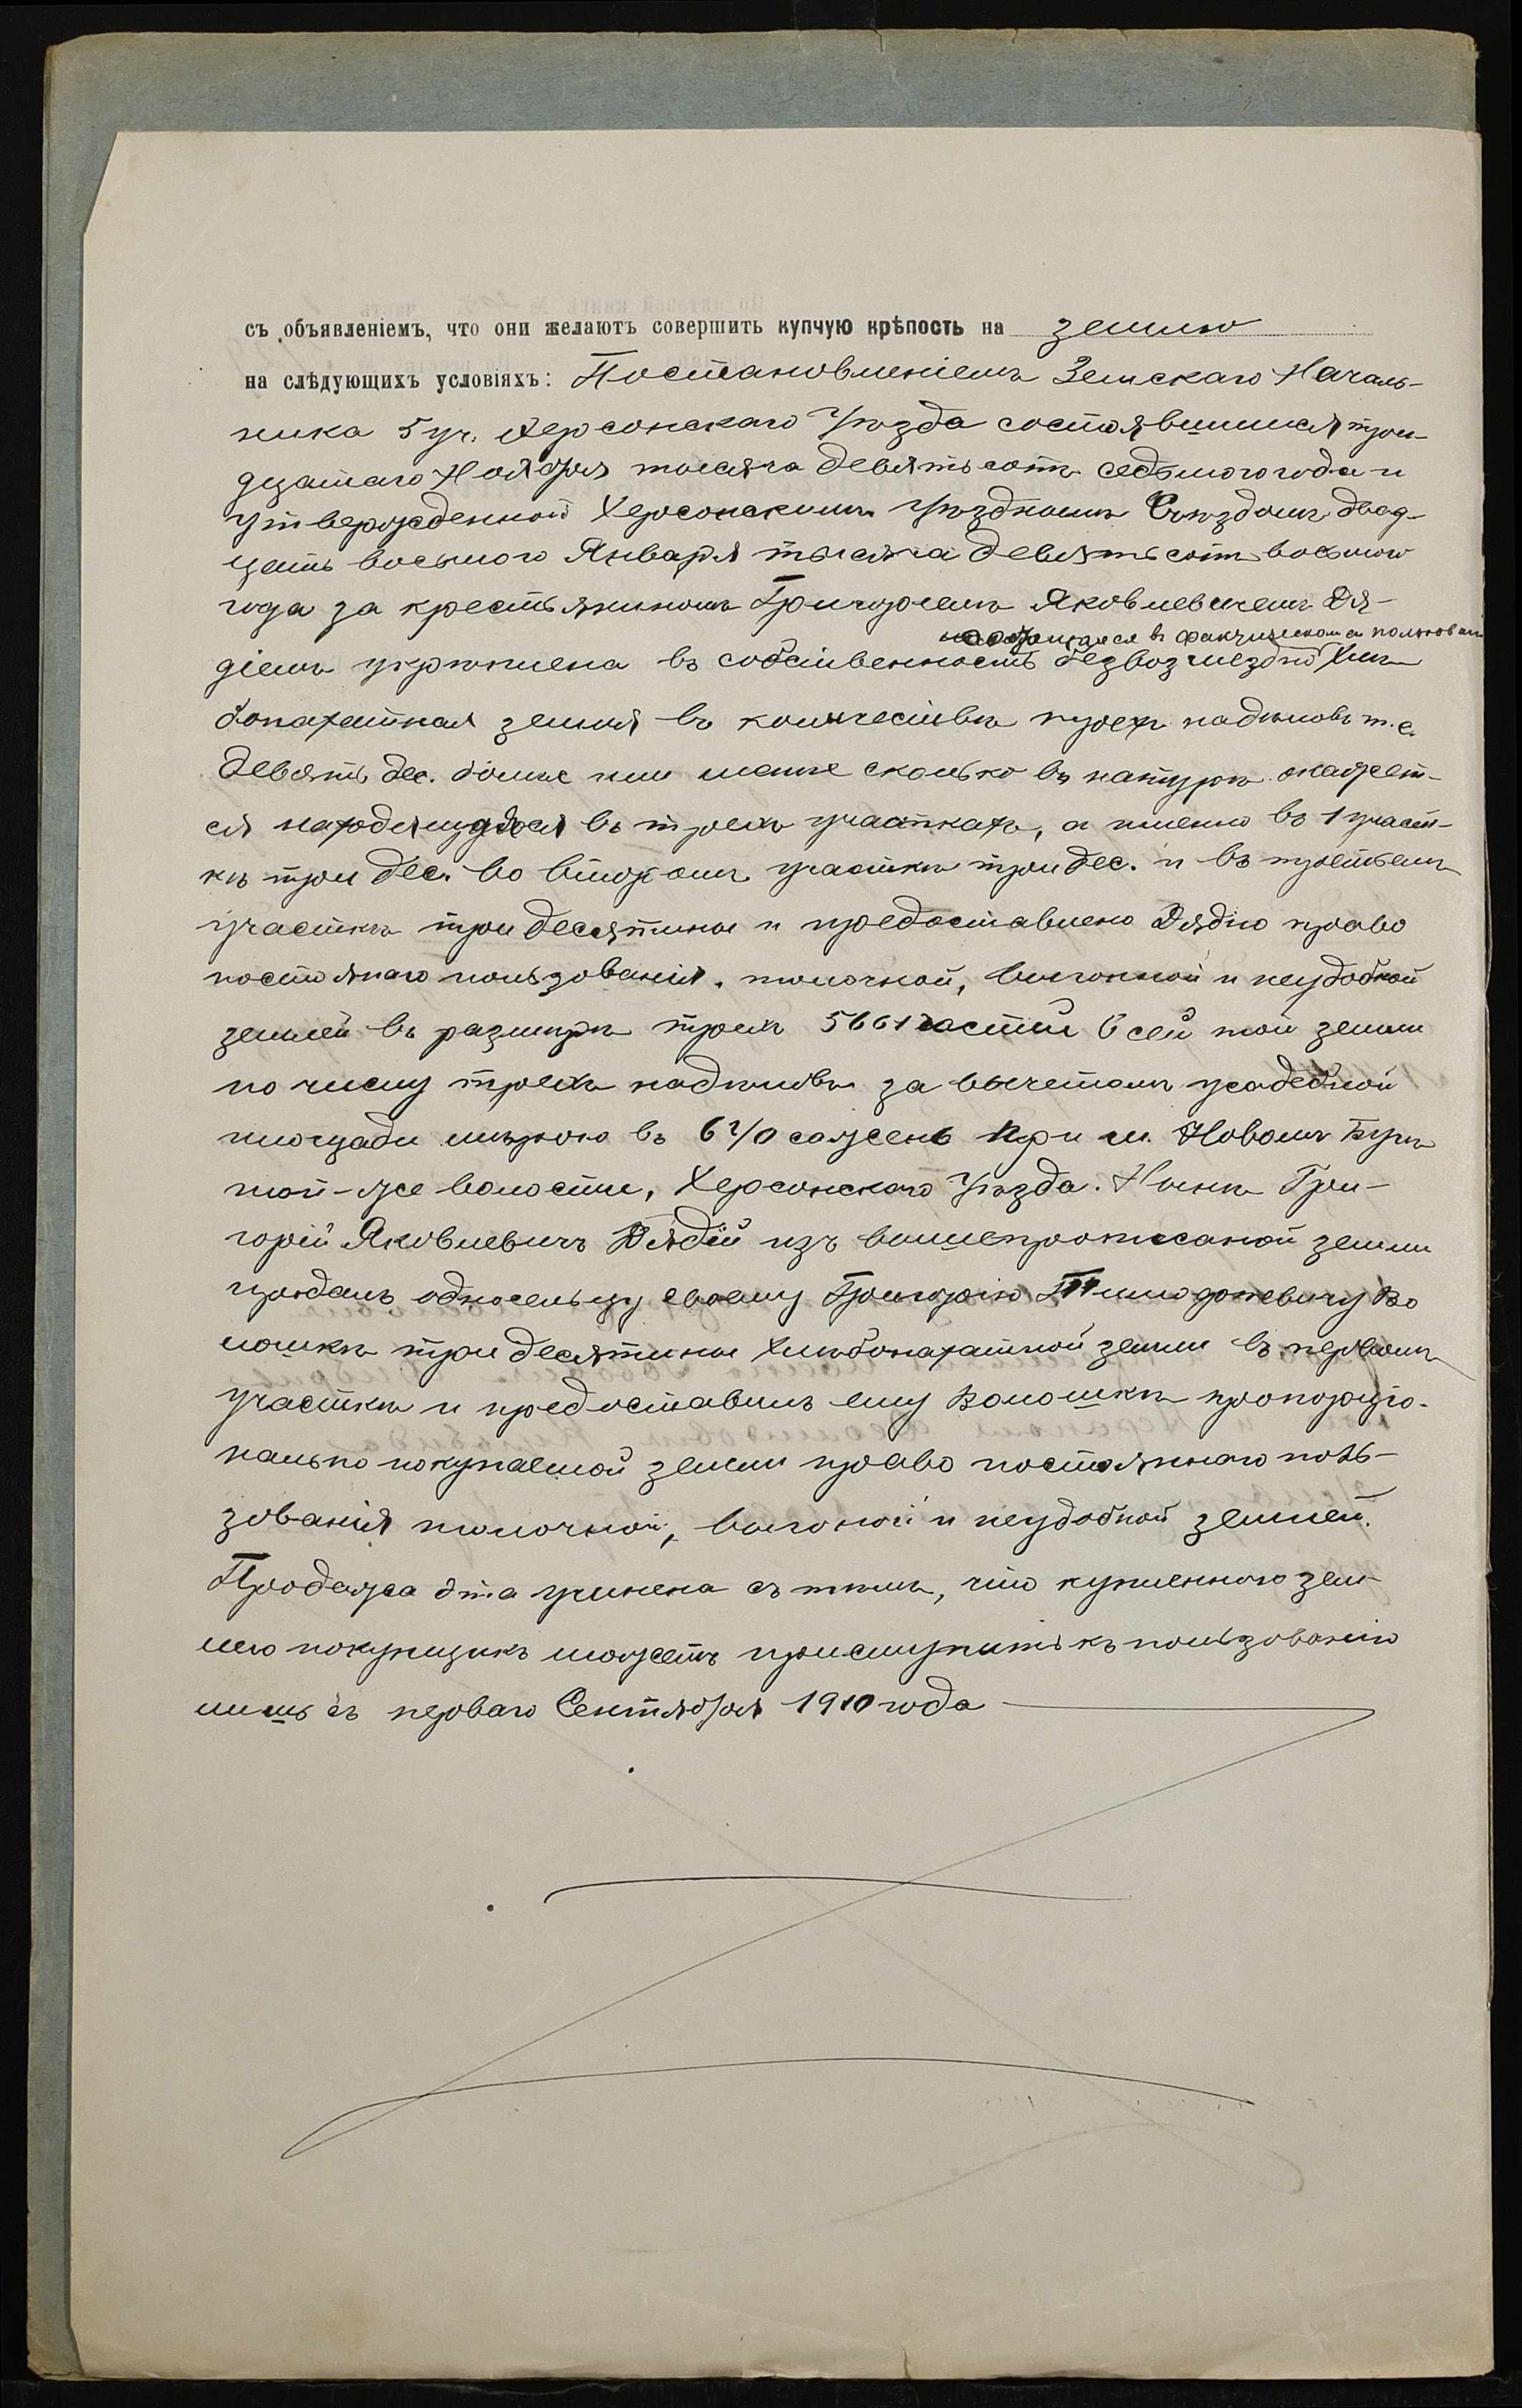 съ объявленіемъ, что они желаютъ совершить купчую крѣпость на землю
на слѣдующихъ условіяхъ: Постановленіемъ Земскаго Началь-
ника 5 уч. Херсонскаго Уѣзда состоявшимся трид-
цатаго Ноября тысяча девятьсотъ седьмого года и
утвержденной Херсонскимъ Уѣзднымъ Съѣздомъ двад-
цать восьмого Января тысяча девятьсотъ восьмого
года за крестьяниномъ Григоріемъ Яковлевичемъ Дя-
находящаяся въ фактическомъ пользовани
діемъ укрѣплена въ собственность безвозмездно хлѣ-
бопахатная земля въ количествѣ трехъ надѣловъ т.е.
девять дес. болѣе или менѣе сколько въ натурѣ окажет-
ся находящаяся въ трехъ участкахъ, а именно въ 1 участ-
кѣ три дес. во второмъ участкѣ три дес. и въ третьемъ
участкѣ три десятины и предоставлено Дядію право
постоянаго пользованія, толочной, выгонной и неудобной
землей въ размѣрѣ трехъ 5661 части всей той земли
по числу трехъ надѣловъ за вычетомъ усадебной
площади мѣрою въ саженъ при м. Новомъ Бугѣ
той-же волости, Херсонскаго Уѣзда. Нынѣ Гри-
горій Яковлевичъ Дядій изъ вышепрописаной земли
продалъ односельцу своему Григорію Тимофеевичу Во
лошкѣ три десятины хлѣбопахатной земли въ первомъ
участкѣ и предоставилъ ему Волошкѣ пропорціо-
нально покупаемой земли право постояннаго поль-
зованія толочной, выгоной и неудобной землей.
Продажа эта учинена съ тѣмъ, что купленною зем-
лею покупщикъ можетъ приступить къ пользованію
лишь съ перваго Сентября 1910 года